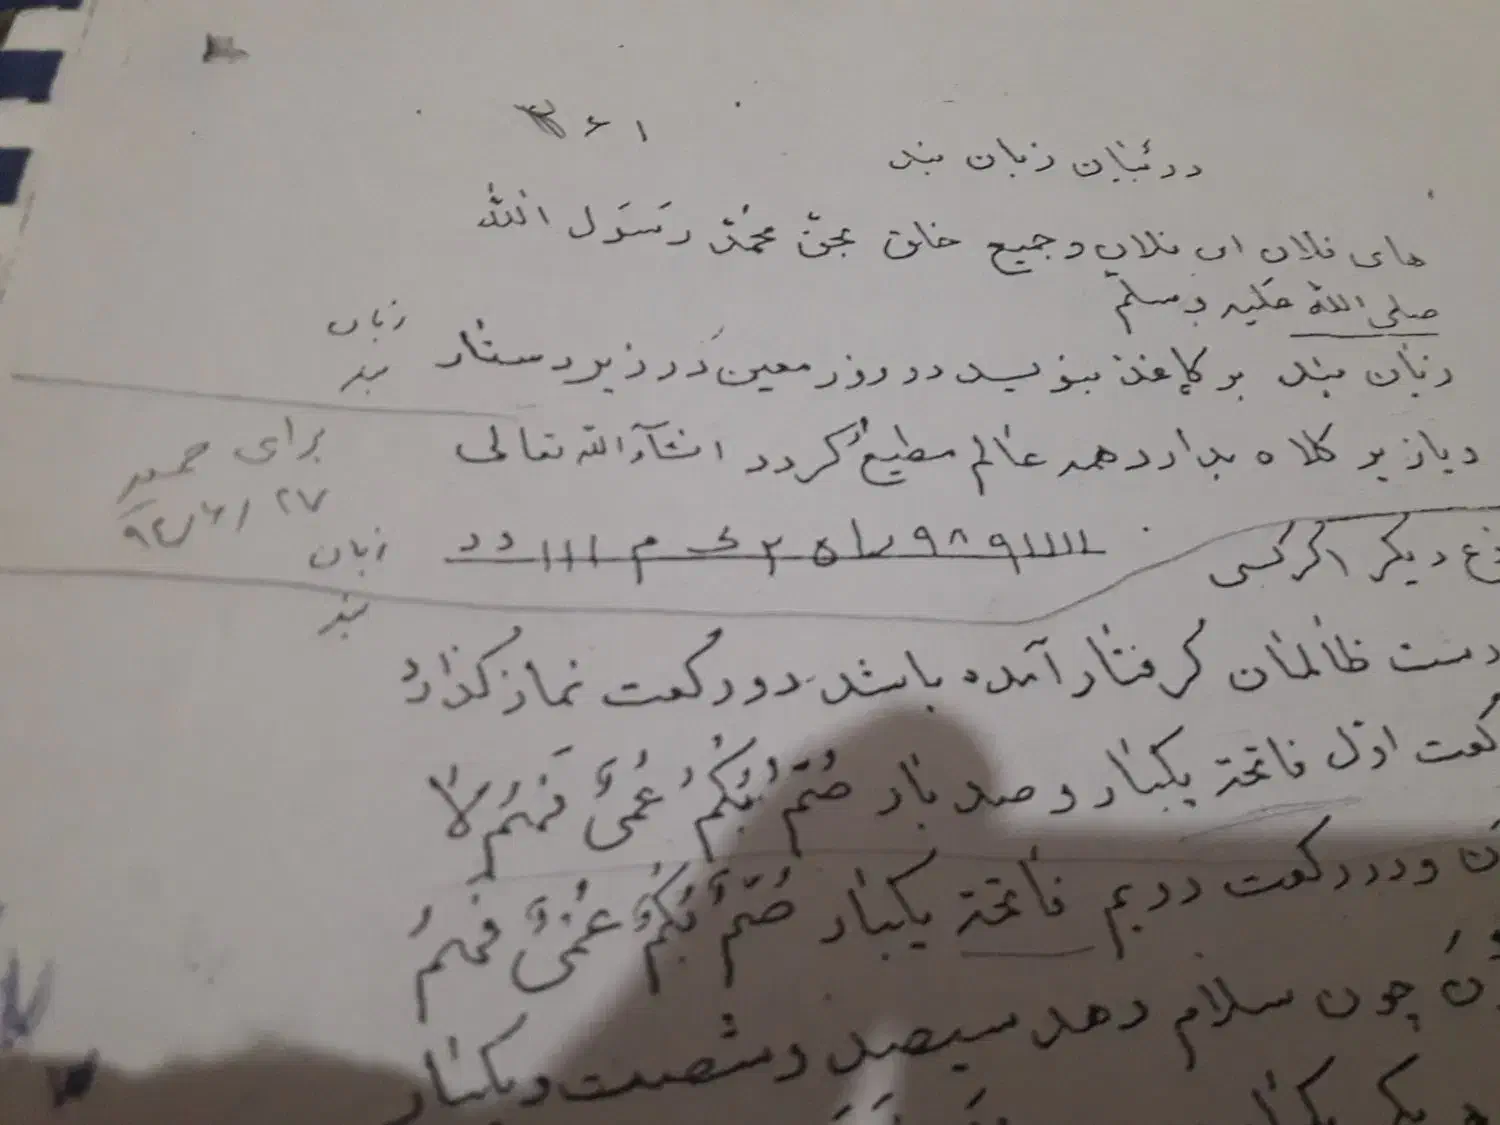 ۳۶۱
در بیان زبان بند
های فلان ابن فلان و جمیع خلق بحق محمدٌ رَسَول الله
صلی الله علیه وسلم
زبان بند بر کاغذ بنویسد در روز معین در زیر دستار
زبان بند
و یا زیر کلاه بدارد همه عالم مطیع گردد انشآء الله تعالی
برای
۹۲/۶/۲۷
زبان بند
۱۱۱۱۱۹۸۹
نوع دیگر اگر کسی
دست ظالمان گرفتار آمده باشد دو رکعت نماز گذارد
رکعت اوّل فاتحة یکبار و صد بار صُمٌّ بُکْمٌ عُمْیٌ فَهُمْ لا
ن و در رکعت دویم فاتحة یکبار صُمٌّ بُکْمٌ عُمْیٌ فَهُمْ
نَ چون سلام دهد سیصد و شصت و یکبار